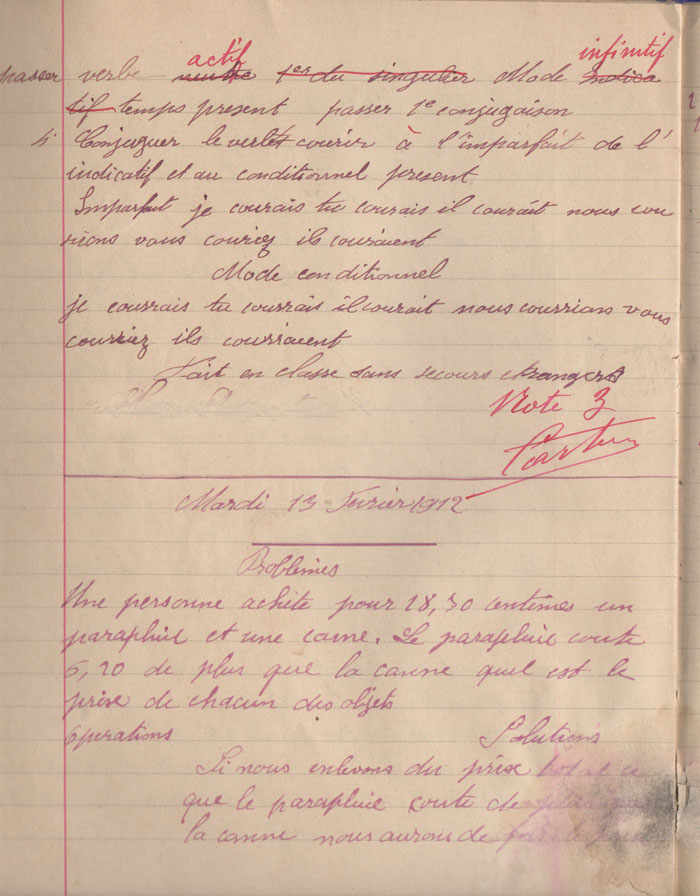 passer verbe neutre actif 1er du singulier Mode indica infinitif
tif temps présent passer 1e conjugaison
4° Conjuguer le verbe courir à l'imparfait de l'
indicatif et au conditionnel present
Imparfait je courais tu courais il courait nous cou
rions vous couriez ils couraient
Mode conditionnel
je courrais tu courrais il courait nous courrions vous
courriez ils courraient
Fait en classe sans secours étrangers
Note 3
Mardi 13 Fevrier 1912
Problèmes
Une personne achète pour 18,30 centimes un
parapluie et une canne. Le parapluie coute
5,20 de plus que la canne quel est le
prix de chacun des objets
Opérations Solutions
Si nous enlevons du prix total ce
que le parapluie coute de plus que
la canne nous aurons de